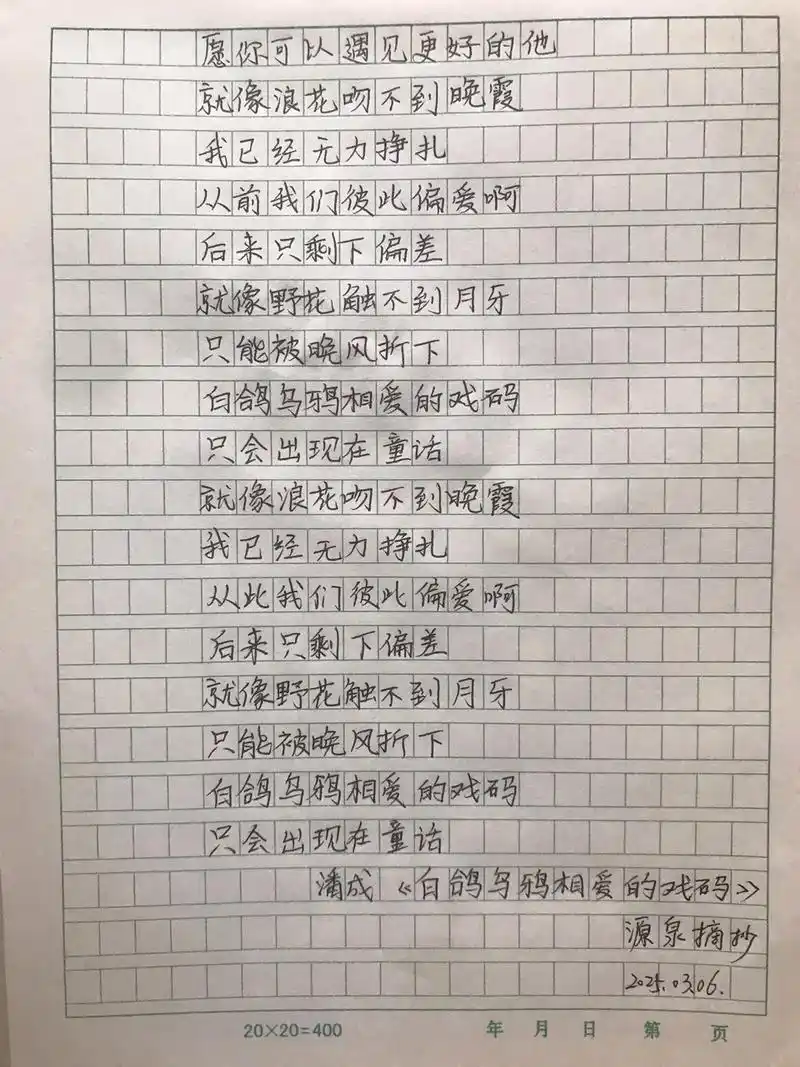 愿你可以遇见更好的他
就像浪花吻不到晚霞
我已经无力挣扎
从前我们彼此偏爱啊
后来只剩下偏差
就像野花触不到月牙
只能被晚风折下
白鸽乌鸦相爱的戏码
只会出现在童话
就像浪花吻不到晚霞
我已经无力挣扎
从此我们彼此偏爱啊
后来只剩下偏差
就像野花触不到月牙
只能被晚风折下
白鸽乌鸦相爱的戏码
只会出现在童话
潘成《白鸽乌鸦相爱的戏码》
源泉摘抄
2025.03.06.
20×20=400 年 月 日 第 页